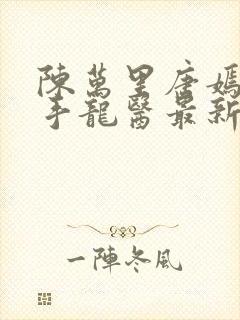 陳萬里唐嫣
手龍醫最新
一陣冬風